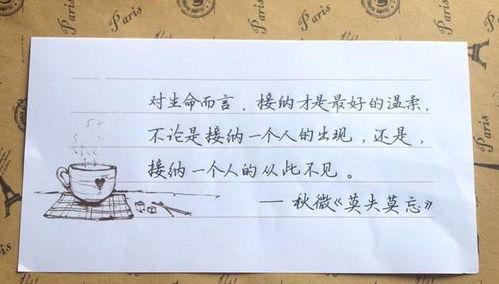 Paris
Paris
对生命而言，接纳才是最好的温柔，
不论是接纳一个人的出现，还是，
接纳一个人的从此不见。
——秋微《莫失莫忘》
Paris
Paris